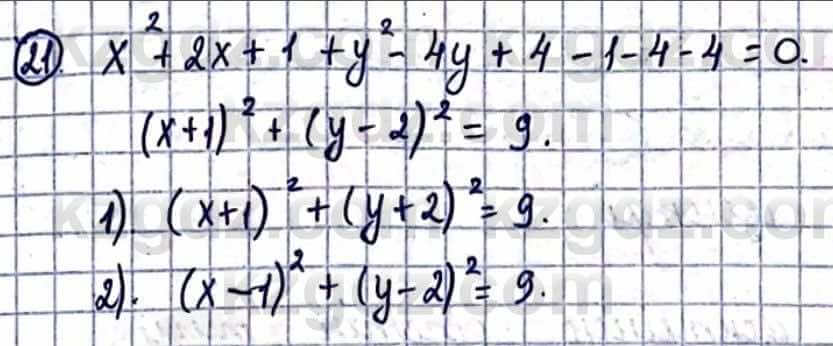 21. x² + 2x + 1 + y² - 4y + 4 - 1 - 4 - 4 = 0.
(x+1)² + (y-2)² = 9.
1). (x+1)² + (y+2)² = 9.
2). (x-1)² + (y-2)² = 9.